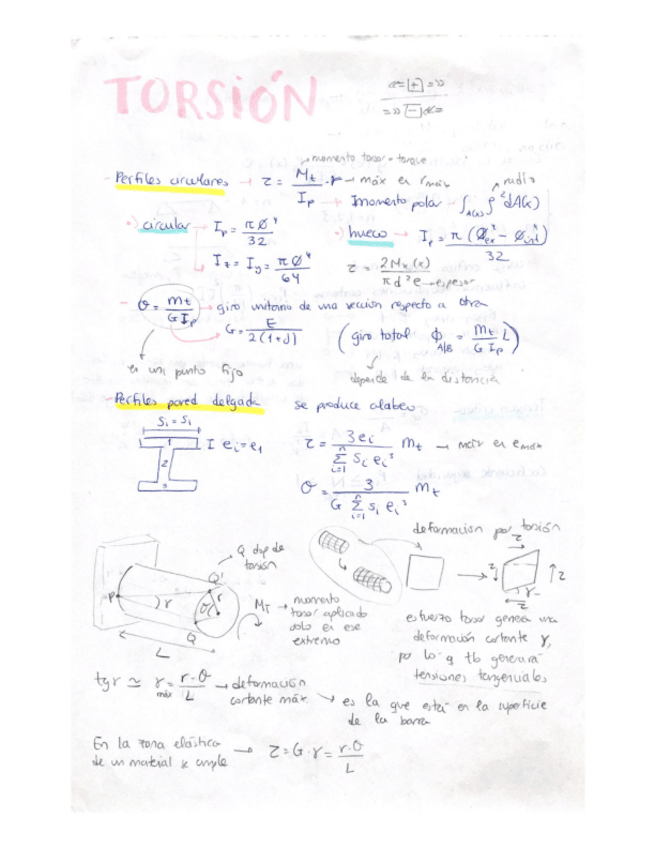 TORSIÓN
«= [+] =»
=» [-] «=
momento torsor = torque
- Perfiles circulares → τ = Mt / Ip · r → máx en rmáx
radio
Ip → Imomento polar ∫A(x) ρ² dA(x)
·) circular → Ip = π Ø⁴ / 32
·) hueco → Ip = π (Ø⁴ex - Ø⁴int) / 32
Iz = Iy = π Ø⁴ / 64
τ = 2Mx(x) / π d² e → espesor
- θ = Mt / G Ip → giro unitario de una sección respecto a otra
G = E / 2(1+ν)
(giro total Φ A/B = Mt / G Ip L)
en un punto fijo
depende de la distancia
- Perfiles pared delgada se produce alabeo
Si = S1
1 I ei = e1
2
3
τ = 3ei / Σ si ei³ Mt → máx en emáx
i=1 n
θ = 3 / G Σ si ei³ Mt
i=1 n
deformación por torsión
Q dsp de torsión
Q'
P γ θ r
Q
L
MT → momento
torsor aplicado
solo en ese
extremo
τ
τ τ
γ
τ
esfuerzo torsor genera una
deformación cortante γ,
por lo q tb generará
tensiones tangenciales
tg γ ≃ γmáx = r·θ / L → deformación
cortante máx → es la que está en la superficie
de la barra
En la zona elástica
de un material se cumple → τ = G·γ = r·θ / L